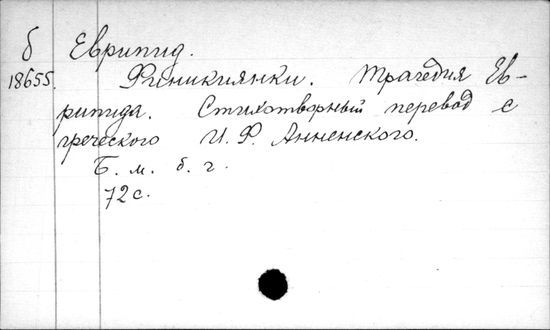 б Еврипид.
18655. Финикиянки. Трагедия Ев-
рипида. Стихотворный перевод с
греческого И. Ф. Анненского.
Б. м. б. г.
72 с.